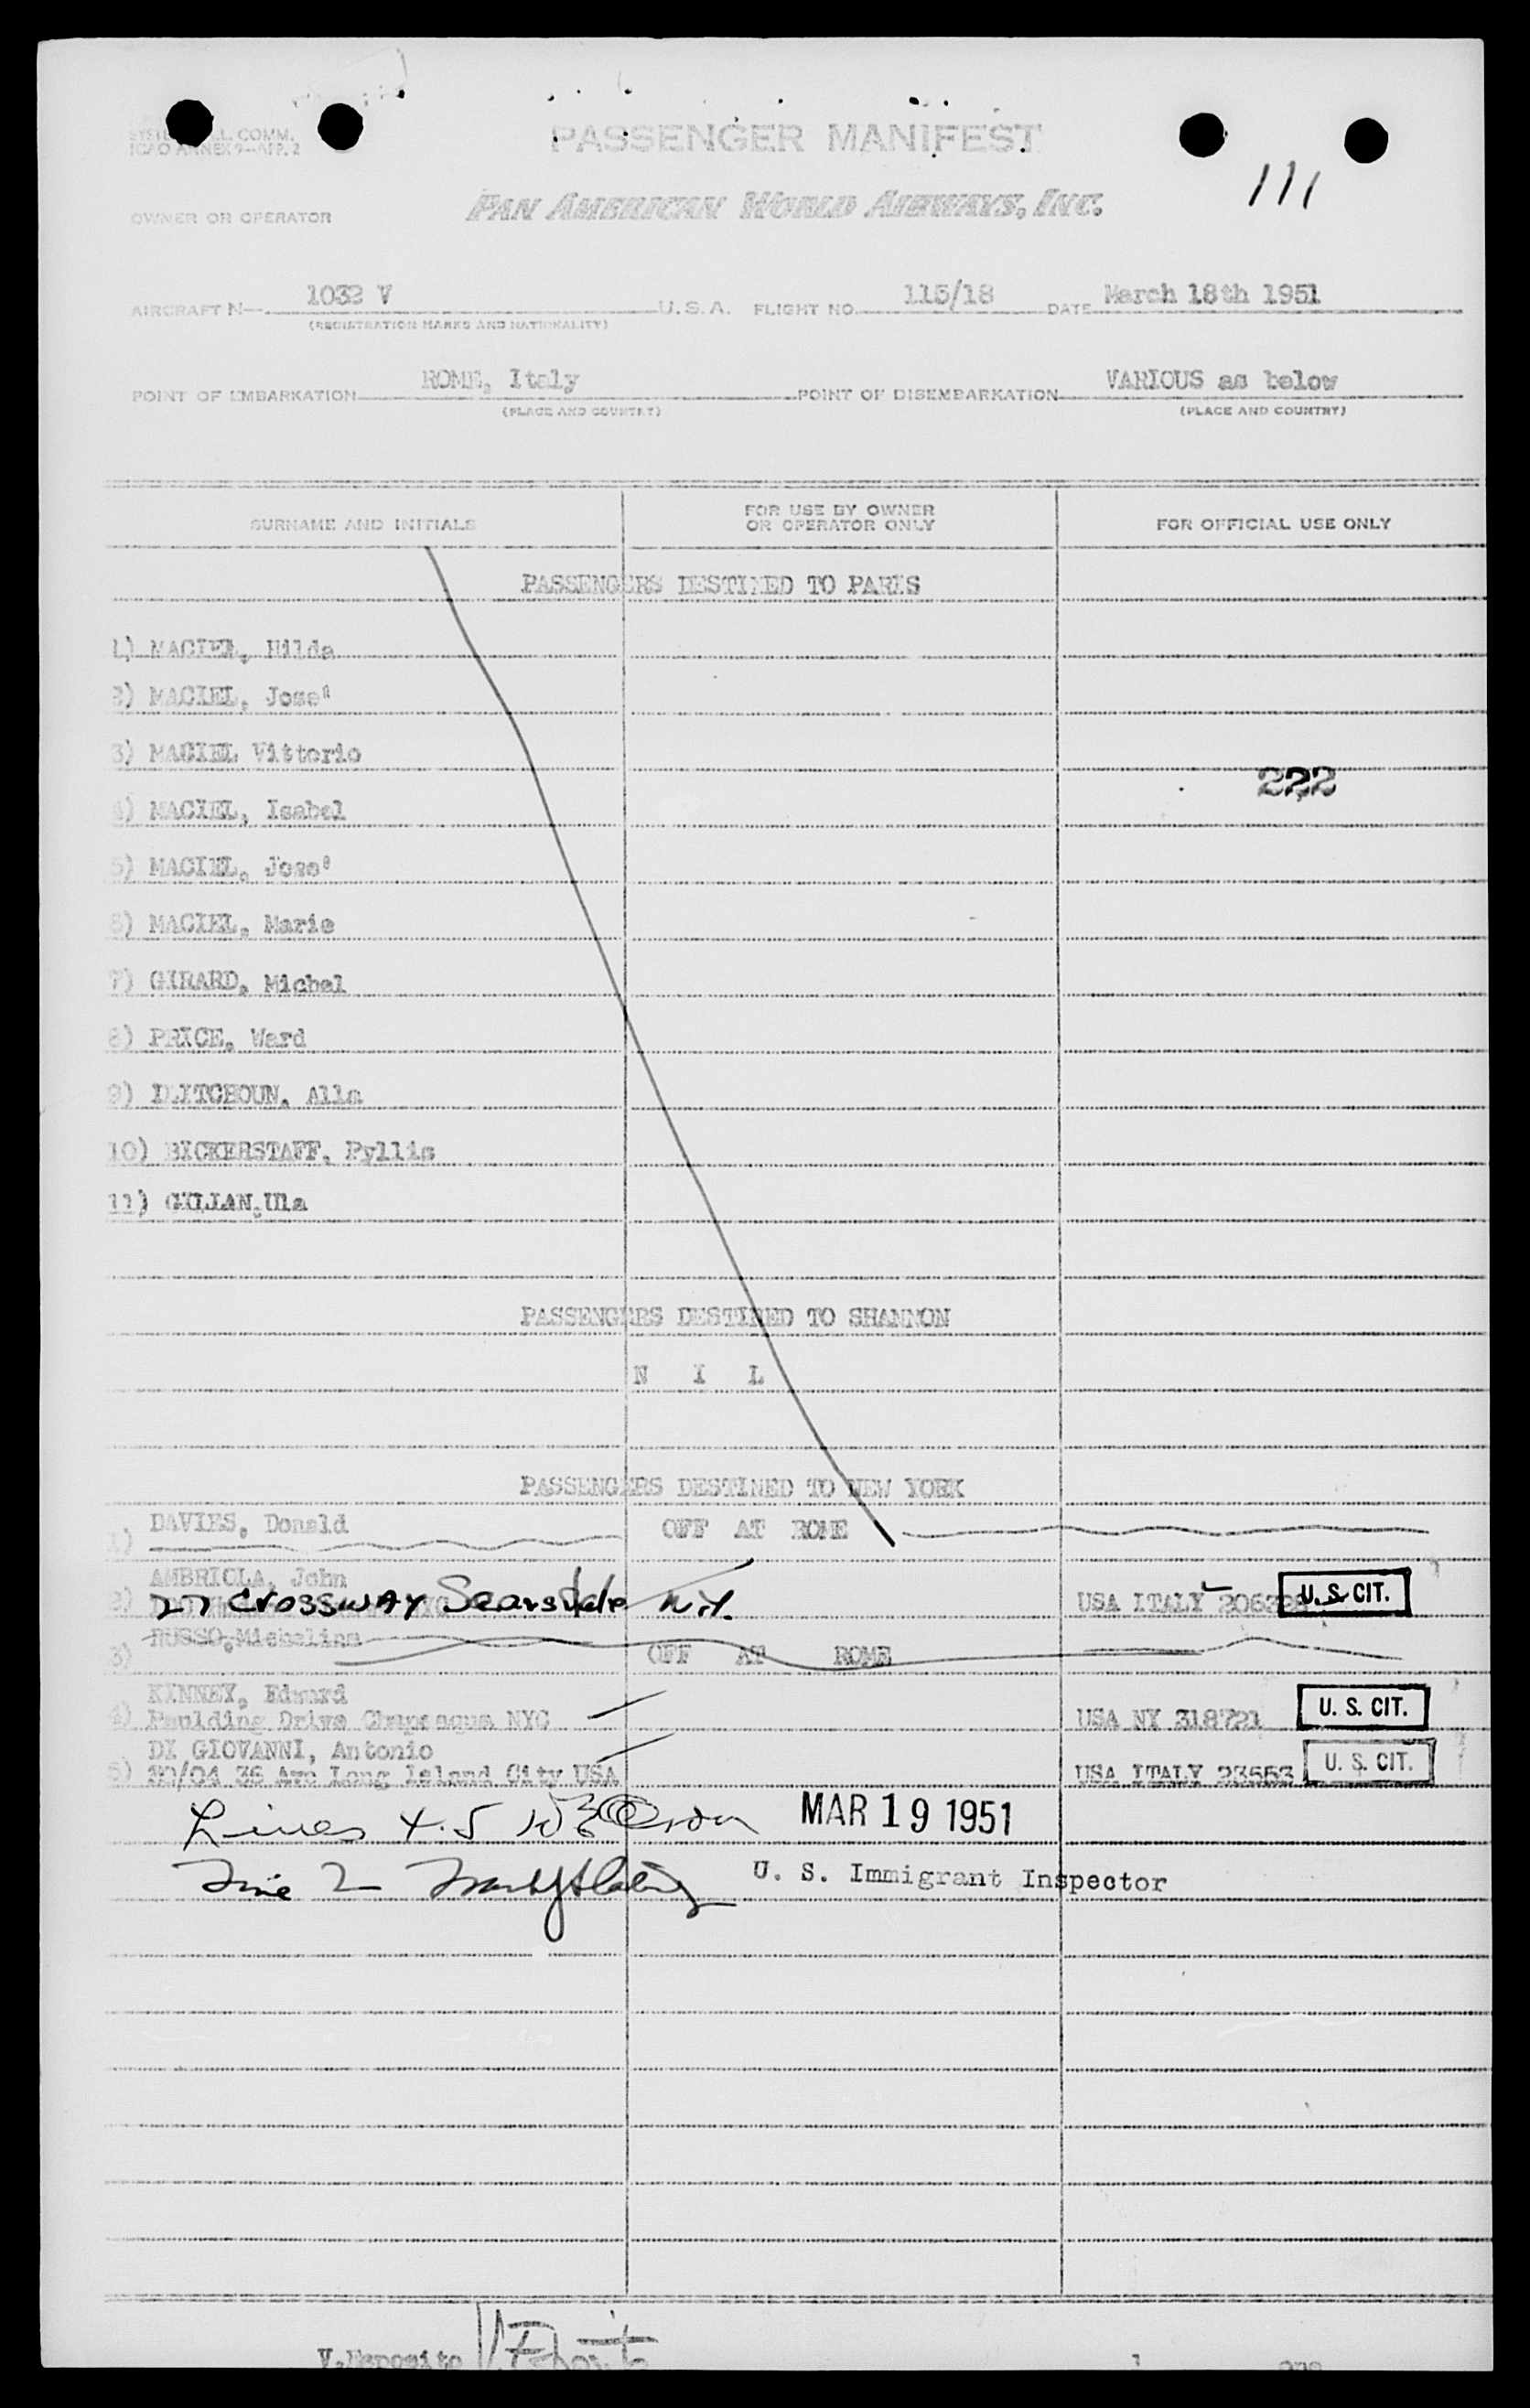 SYSTEM ALL. COMM.
ICAO ANNEX 9—APP. 2
PASSENGER MANIFEST
111
OWNER OR OPERATOR
PAN AMERICAN WORLD AIRWAYS, INC.
AIRCRAFT N— 1032 V U.S.A. FLIGHT NO. 115/18 DATE March 18th 1951
(REGISTRATION MARKS AND NATIONALITY)
POINT OF EMBARKATION ROME, Italy POINT OF DISEMBARKATION VARIOUS as below
(PLACE AND COUNTRY) (PLACE AND COUNTRY)
SURNAME AND INITIALS FOR USE BY OWNER OR OPERATOR ONLY FOR OFFICIAL USE ONLY
PASSENGERS DESTINED TO PARIS
1) MACIEL, Hilda
2) MACIEL, Jose'
3) MACIEL Vittorio
222
4) MACIEL, Isabel
5) MACIEL, Jose'
6) MACIEL, Marie
7) GIRARD, Michel
8) PRICE, Ward
9) ILITCHOUN, Alla
10) BICKERSTAFF, Pyllis
11) GILLAN, Ula
PASSENGERS DESTINED TO SHANNON
N I L
PASSENGERS DESTINED TO NEW YORK
1) DAVIES, Donald OFF AT ROME
2) AMBRIOLA, John
27 Crossway Scarsdale N.Y. USA ITALY U.S. CIT.
3) RUSSO, Michelina OFF AT ROME
4) KINNEY, Edward
Paulding Drive Chappaqua NYC USA NY 318721 U. S. CIT.
5) DI GIOVANNI, Antonio
30/04 36 Ave Long Island City USA USA ITALY 23553 U. S. CIT.
Lines 4.5 MAR 19 1951
Line 2 U. S. Immigrant Inspector
V. Esposito